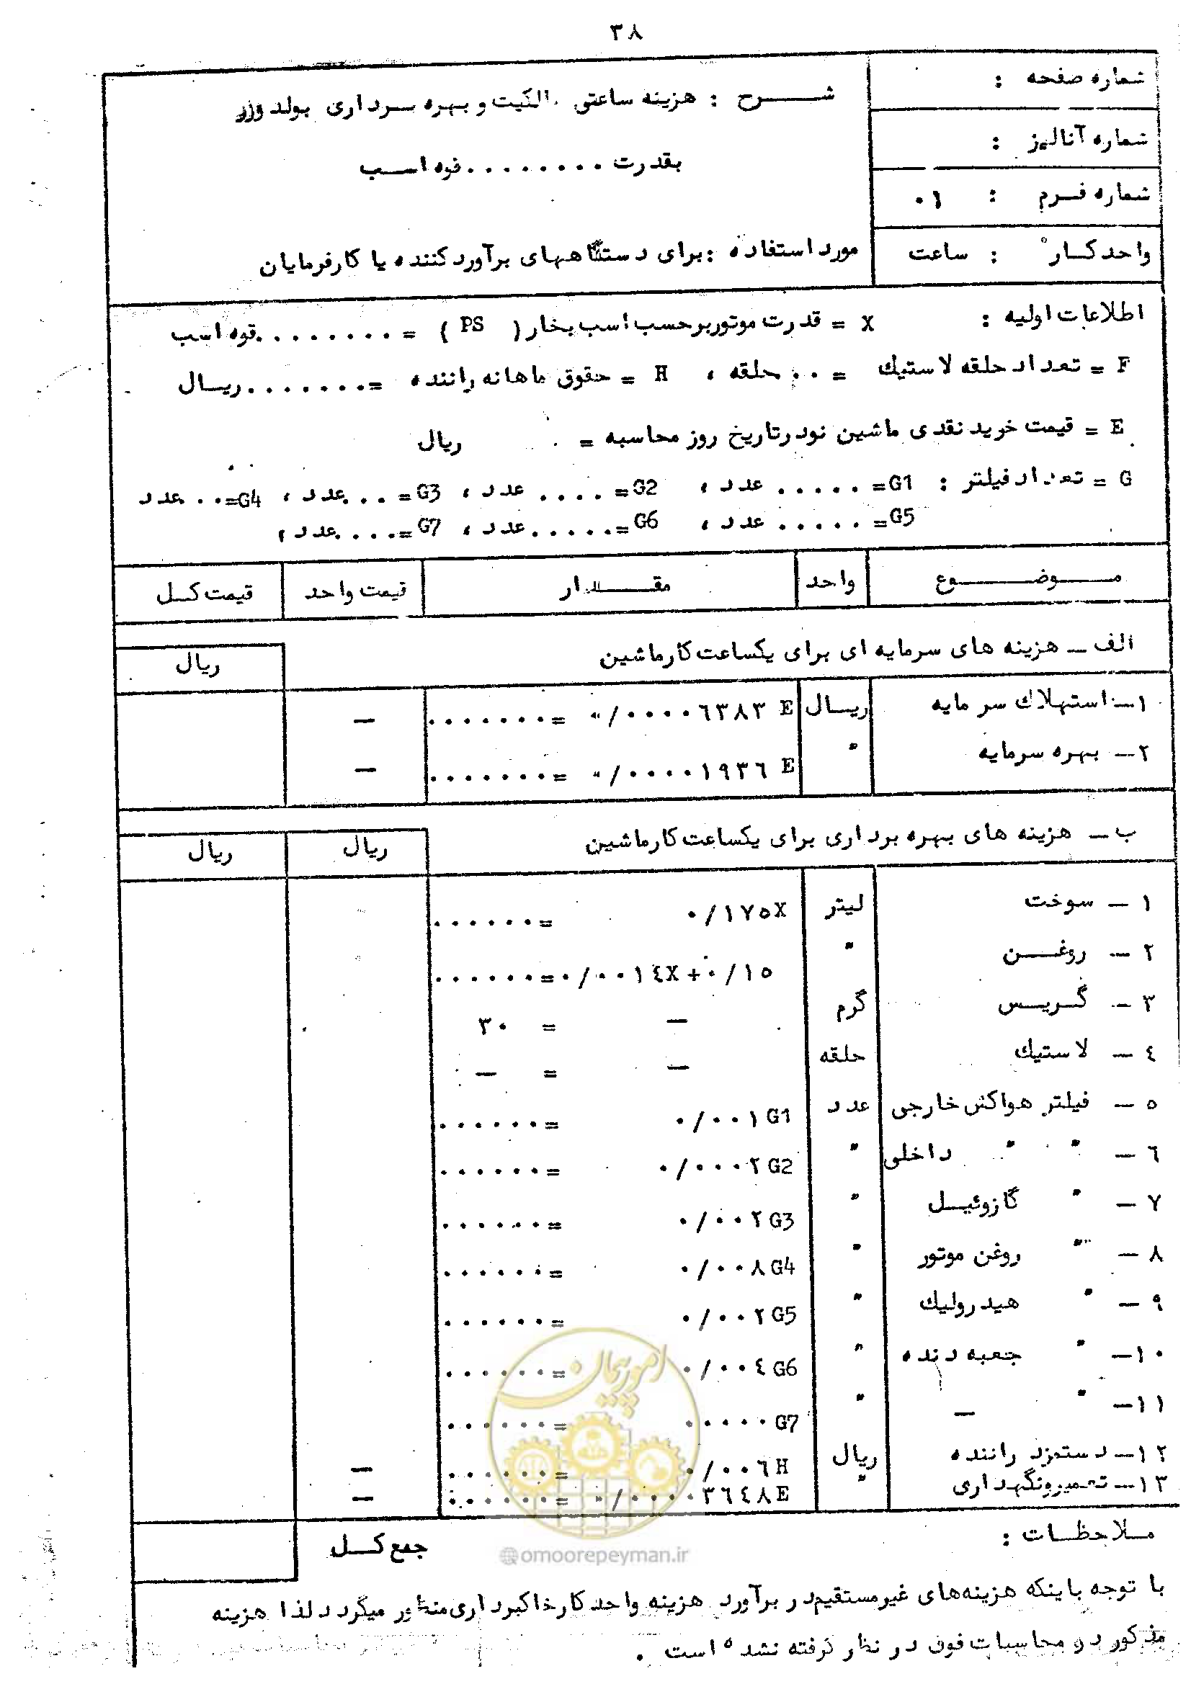 ٣٨
شماره صفحه :
شماره آنالیز :
شماره فـرم : ٠١
واحد کـار : ساعت
شـــــرح : هزینه ساعتی مالکیت و بهره بـرداری بولدوزر
بقدرت ........ قوه اسـب
مورد استفاده : برای دستگاههای برآورد کننده یا کارفرمایان
اطلاعات اولیه : X = قدرت موتور برحسب اسب بخار ( PS ) = ........ قوه اسب
F = تعداد حلقه لاستیك = .. حلقه ، H = حقوق ماهانه راننده = ....... ریـال
E = قیمت خرید نقدی ماشین نو در تاریخ روز محاسبه = ریال
G = تعداد فیلتر : G1= ..... عدد ، G2= .... عدد ، G3= ... عدد ، G4= .. عدد
G5= ..... عدد ، G6= ..... عدد ، G7= .... عدد ،
مـــوضـــوع واحد مقــدار قیمت واحد قیمت کـل
الف ــ هزینه های سرمایه ای برای یکساعت کار ماشین ریال
١ــ استهلاك سرمایه ریـال ٠/٠٠٠٠٦٣٨٣ E = ....... ــ
٢ــ بهره سرمایه " ٠/٠٠٠٠١٩٣٦ E = ....... ــ
ب ــ هزینه های بهره برداری برای یکساعت کار ماشین ریال ریال
١ ــ سوخت لیتر ٠/١٧٥X = ......
٢ ــ روغــن " ٠/٠٠١٤X + ٠/١٥ = ......
٣ ــ گـریـس گرم ــ = ٣٠
٤ ــ لاستیك حلقه ــ = ــ
٥ ــ فیلتر هواکش خارجی عدد ٠/٠٠١G1 = ......
٦ ــ " " داخلی " ٠/٠٠٠٢G2 = ......
٧ ــ " گازوئیـل " ٠/٠٠٢G3 = ......
٨ ــ " روغن موتور " ٠/٠٠٨G4 = ......
٩ ــ " هیدرولیك " ٠/٠٠٢G5 = ......
١٠ــ " جعبه دنده " ٠/٠٠٤G6 = ......
١١ــ " ــ " ..... G7 = ......
١٢ــ دستمزد راننده ریال ٠/٠٠٦H = ...... ــ
١٣ــ تعمیر و نگهداری " ٠/٠٠٠٠٣٦٤٨E = ...... ــ
جمع کـل
ملاحظـات :
با توجه باینکه هزینه‌های غیرمستقیم در برآورد هزینه واحد کار خاکبرداری منظور میگردد لذا هزینه
مذکور در محاسبات فوق در نظر گرفته نشده است .
امور پیمان
@omoorepeyman.ir